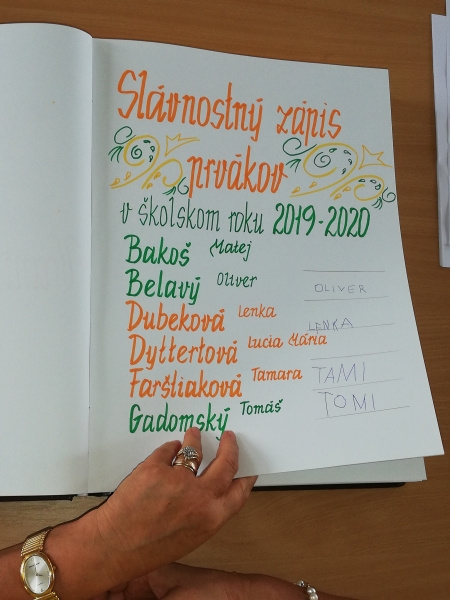 Slávnostný zápis
prvákov
v školskom roku 2019-2020
Bakoš Matej
Belavý Oliver
OLIVER
Dubeková Lenka
LENKA
Dyttertová Lucia Mária
Faršliaková Tamara
TAMI
Gadomský Tomáš
TOMI